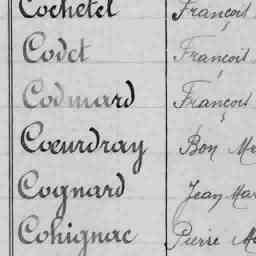 Cochetel François
Codet François
Codmard François
Coeurdray Bon
Cognard Jean
Cohignac Pierre